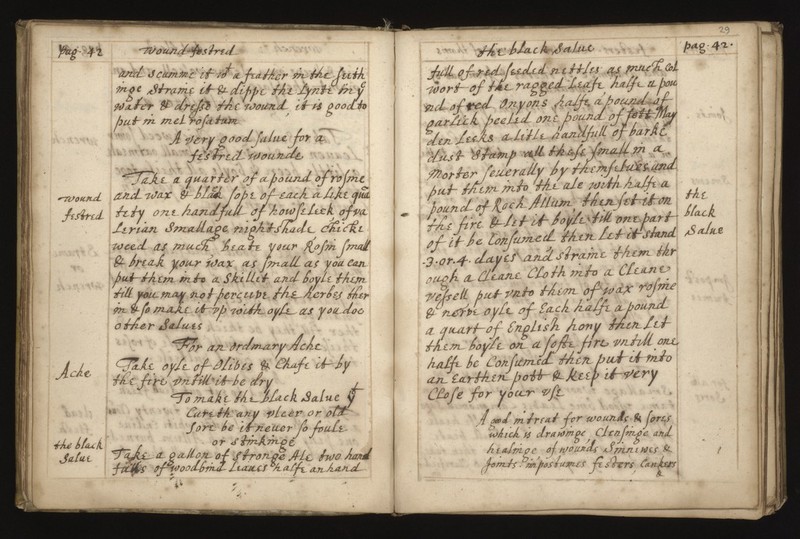 pag. 42
wound festred
and scumme it wt a feather in the seeth
inge Straine it & dippe the Lynte in ye
water & dresse the wound, it is good to
put in mel rosatum
A very good salue for a
festred wounde
wound
festred
Take a quarter of a pound of rosine
and wax & black sope of each a like qua
tety one handfull of howseleek of va
Lerian Smallage nightshade chicke
weed as much beate your Rosin small
& break your wax as small as you can
put them into a Skillet and boyle them
till you may not perceiue the herbes ther
in & so make it vp with oyle as you doe
other Salues
For an ordinary Ache
Ache
Take oyle of Olibes & Chafe it by
the fire vntill it be dry
To make the black Salue yt
Cureth any vlcer or old
sore be it neuer so foule
or stinkinge
the black
Salue
Take a gallon of stronge Ale two hand
fulls of woodbind Leaues halfe an hand
29
the black Salue
pag. 42.
full of red seeded nettles as much Col
wort of the ragged Leafe halfe a pou
nd of red Onyons halfe a pound of
garlick peeled one pound of sott May
den Leeks a litle handfull of barke
dust Stamp all these small in a
Morter seuerally by themselues and
put them into the ale with halfe a
pound of Roch Allum then set it on
the fire & let it boyle till one part
of it be Consumed then Let it stand
3 or 4 dayes and straine them thr
ough a Cleane Cloth into a Cleane
vessell put vnto them of wax rosine
& nerve oyle of Each halfe a pound
a quart of English hony then Let
them boyle on a softe fire vntill one
halfe be Consumed then put it into
an Earthen pott & keep it very
Close for your vse
the
black
Salue
A intreat for wounds & sores
which is drawinge Clensinge and
healinge of wounds Sinniwes &
Joints impostumes festers Cankers
&